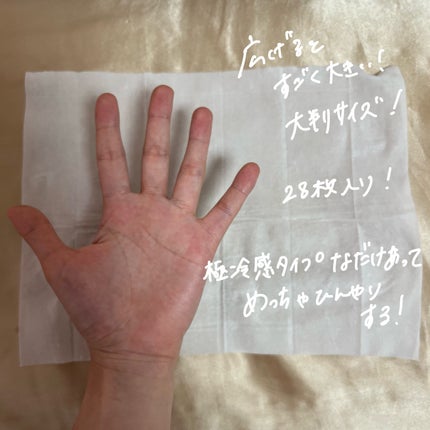 広げると
すごく大きい!
大判サイズ!
28枚入り!
極冷感タイプなだけあって
めっちゃひんやり
する!